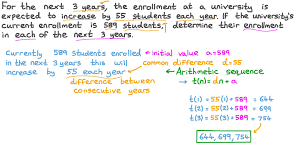 For the next 3 years, the enrollment at a university is
expected to increase by 55 students each year. If the university's
current enrollment is 589 students, determine their enrollment
in each of the next 3 years.
Currently 589 students enrolled ← initial value a=589
in the next 3 years this will common difference d=55
increase by 55 each year ← Arithmetic sequence
difference between → t(n)=dn+a
consecutive years
t(1)=55(1)+589=644
t(2)=55(2)+589=699
t(3)=55(3)+589=754
644, 699, 754